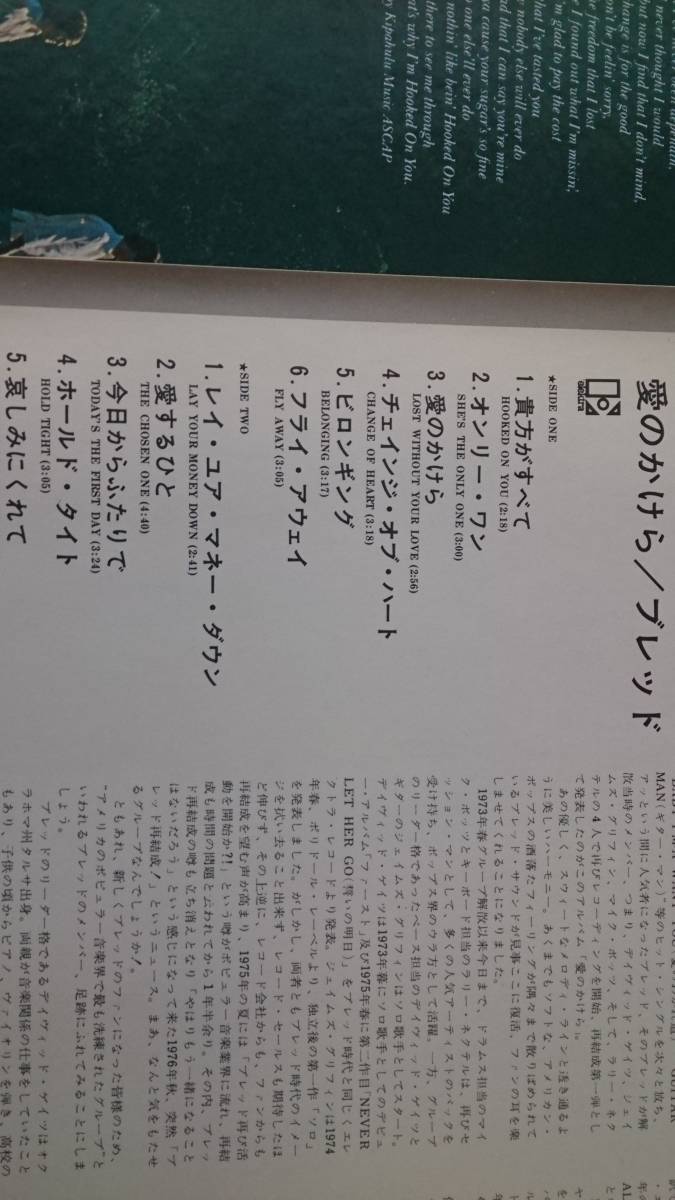 never thought I would
but now I find that I don't mind,
change is for the good
on't be feelin' sorry,
e freedom that I lost
I found out what I'm missin',
'm glad to pay the cost
that I've tasted you
nobody else will ever do
ad that I can say you're mine
a cause your sugar's so fine
one else'll ever do
nothin' like bein' Hooked On You
there to see me through
at's why I'm Hooked On You.
y Kipahulu Music ASCAP
愛のかけら/ブレッド
elektra
★SIDE ONE
1.貴方がすべて
HOOKED ON YOU (2:18)
2.オンリー・ワン
SHE'S THE ONLY ONE (3:00)
3.愛のかけら
LOST WITHOUT YOUR LOVE (2:56)
4.チェインジ・オブ・ハート
CHANGE OF HEART (3:18)
5.ビロンギング
BELONGING (3:17)
6.フライ・アウェイ
FLY AWAY (3:05)
★SIDE TWO
1.レイ・ユア・マネー・ダウン
LAY YOUR MONEY DOWN (2:41)
2.愛するひと
THE CHOSEN ONE (4:40)
3.今日からふたりで
TODAY'S THE FIRST DAY (3:24)
4.ホールド・タイト
HOLD TIGHT (3:05)
5.哀しみにくれて
MAN(ギター・マン)"等のヒット・シングルを次々と放ち、
アッという間に人気者になったブレッド、そのブレッドが解
散当時のメンバー、つまり、デイヴィッド・ゲイツ、ジェイ
ムズ・グリフィン、マイク・ボッツ、そして、ラリー・ネク
テルの4人で再びレコーディングを開始、再結成第一弾とし
て発表したのがこのアルバム「愛のかけら」。
あの優しく、スウィートなメロディ・ラインと透き通るよ
うに美しいハーモニー。あくまでもソフトな、アメリカン・
ポップスの洒落たフィーリングが隅々まで散りばめられて
いるブレッド・サウンドが見事ここに復活、ファンの耳を楽
しませてくれることになりました。
1973年春グループ解散以来今日まで、ドラムス担当のマイ
ク・ボッツとキーボード担当のラリー・ネクテルは、再びセ
ッション・マンとして、多くの人気アーティストのバックを
受け持ち、ポップス界のウラ方として活躍。一方、グループ
のリーダー格であったベース担当のデイヴィッド・ゲイツと
ギターのジェイムズ・グリフィンはソロ歌手としてスタート。
デイヴィッド・ゲイツは1973年暮にソロ歌手としてのデビュ
ー・アルバム「ファースト」及び1975年春に第二作目「NEVER
LET HER GO(誓いの明日)」をブレッド時代と同じくエレ
クトラ・レコードより発表。ジェイムズ・グリフィンは1974
年春、ポリドール・レーベルより、独立後の第一作「ソロ」
を発表しました。がしかし、両者ともブレッド時代のイメー
ジを拭い去ること出来ず、レコード・セールスも期待したほ
ど伸びず、その上逆に、レコード会社からも、ファンからも
再結成を望む声が高まり、1975年の夏には「ブレッド再び活
動を開始か?!」という噂がポピュラー音楽業界に流れ、再結
成も時間の問題と云われてから1年半余り。その内、ブレッ
ド再結成の噂も立ち消えとなり「やはりもう一緒になること
はないだろう」という感じになって来た1976年秋、突然「ブ
レッド再結成!」というニュース。まあ、なんと気をもたせ
るグループなんでしょうか!。
ともあれ、新しくブレッドのファンになった皆様のため、
"アメリカのポピュラー音楽界で最も洗練されたグループ"と
いわれるブレッドのメンバー、足跡にふれてみることにしま
しょう。
ブレッドのリーダー格であるデイヴィッド・ゲイツはオク
ラホマ州タルサ出身。両親が音楽関係の仕事をしていたこと
もあり、子供の頃からピアノ、ヴァイオリンを弾き、高校の